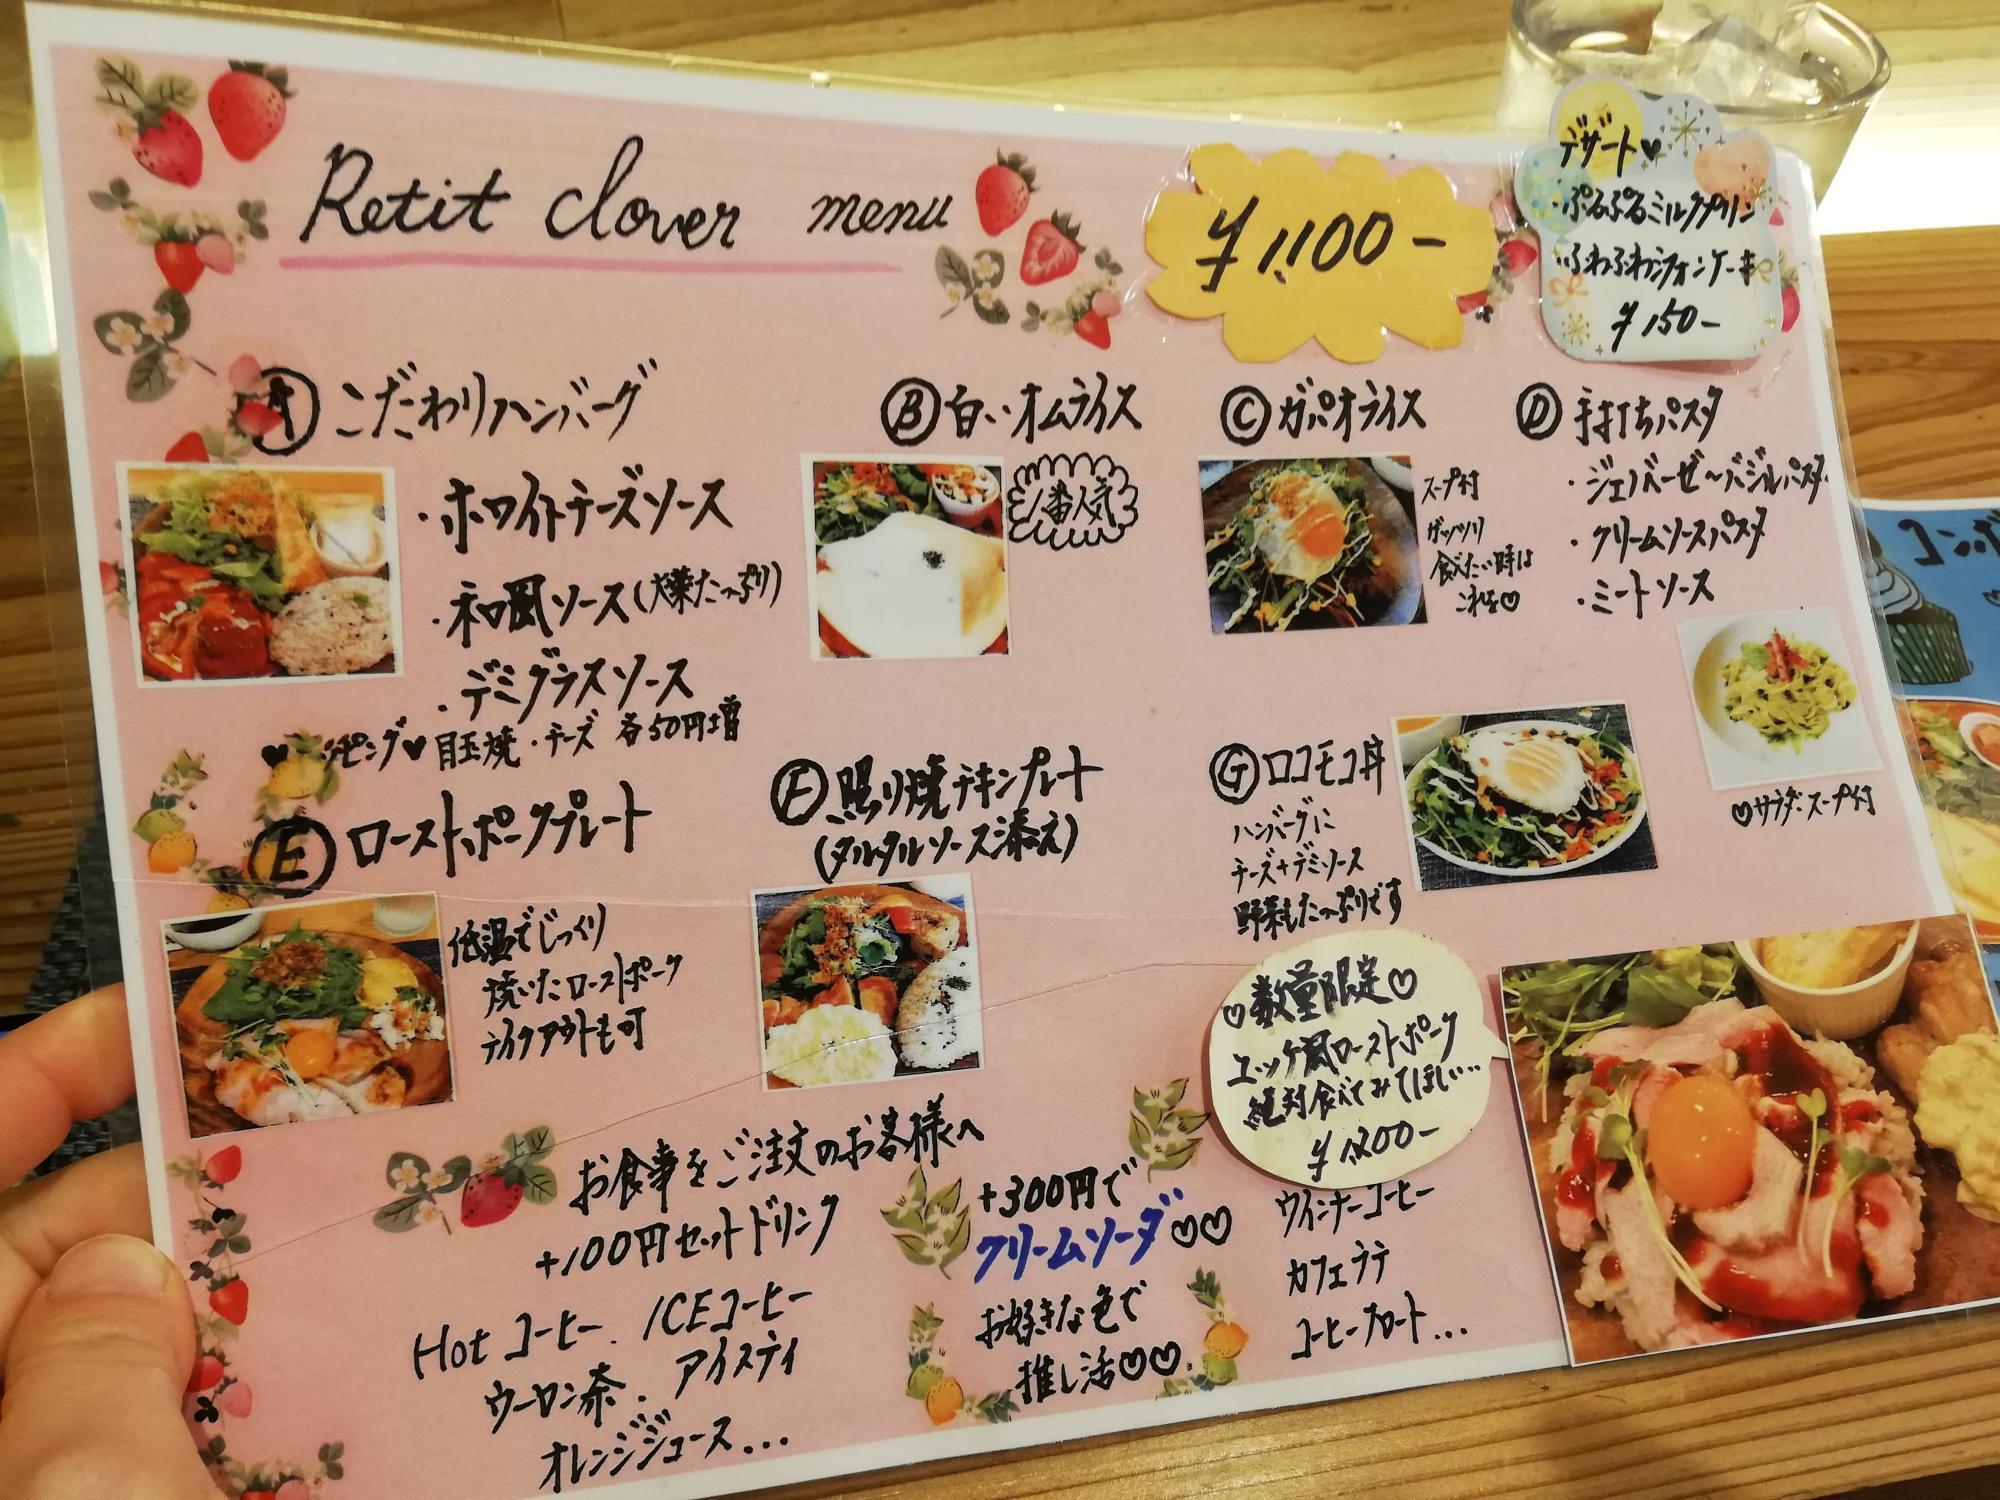 Petit clover menu
¥1,100-
デザート♥
・ぷるぷるミルクプリン
・ふわふわシフォンケーキ
¥150-
Ⓐ こだわりハンバーグ
・ホワイトチーズソース
・和風ソース(大葉たっぷり)
・デミグラスソース
♥トッピング♥ 目玉焼・チーズ 各50円増
Ⓑ 白いオムライス
1番人気
Ⓒ ガパオライス
スープ付
ガッツリ
食べたい時は
これを♡
Ⓓ 手打ちパスタ
・ジェノベーゼ〜バジルパスタ
・クリームソースパスタ
・ミートソース
♡サラダ・スープ付
Ⓔ ローストポークプレート
低温でじっくり
焼いたローストポーク
テイクアウトも可
Ⓕ 照り焼チキンプレート
(タルタルソース添え)
Ⓖ ロコモコ丼
ハンバーグに
チーズ+デミソース
野菜もたっぷりです
♡数量限定♡
ユッケ風ローストポーク
絶対食べてみてほしい…
¥1,200-
お食事をご注文のお客様へ
+100円セットドリンク
Hotコーヒー. ICEコーヒー
ウーロン茶. アイスティ
オレンジジュース...
+300円で
クリームソーダ♡♡
お好きな色で
推し活♡♡
ウインナーコーヒー
カフェラテ
コーヒーフロート...